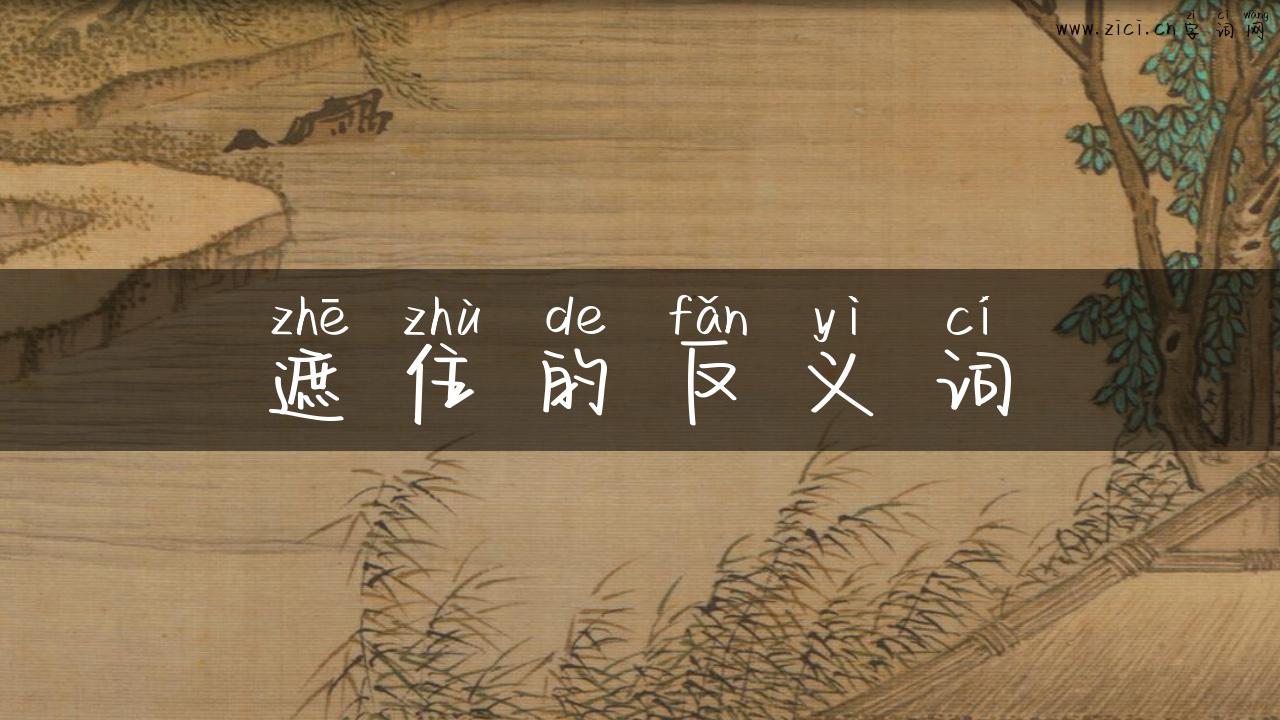 zì cí wǎng
www.zici.cn字词网
zhē zhù de fǎn yì cí
遮住的反义词